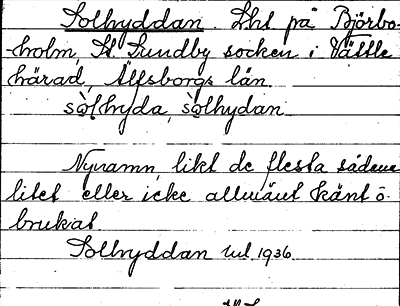 Solhyddan. Lht på Björbo-
-holm, St. Lundby socken i Vättle
härad, Älfsborgs län.
sòlhyda, sòlhydan.
Nynamn, likt de flesta sådana
litet eller icke allmänt känt o.
brukat.
Solhyddan 1936.